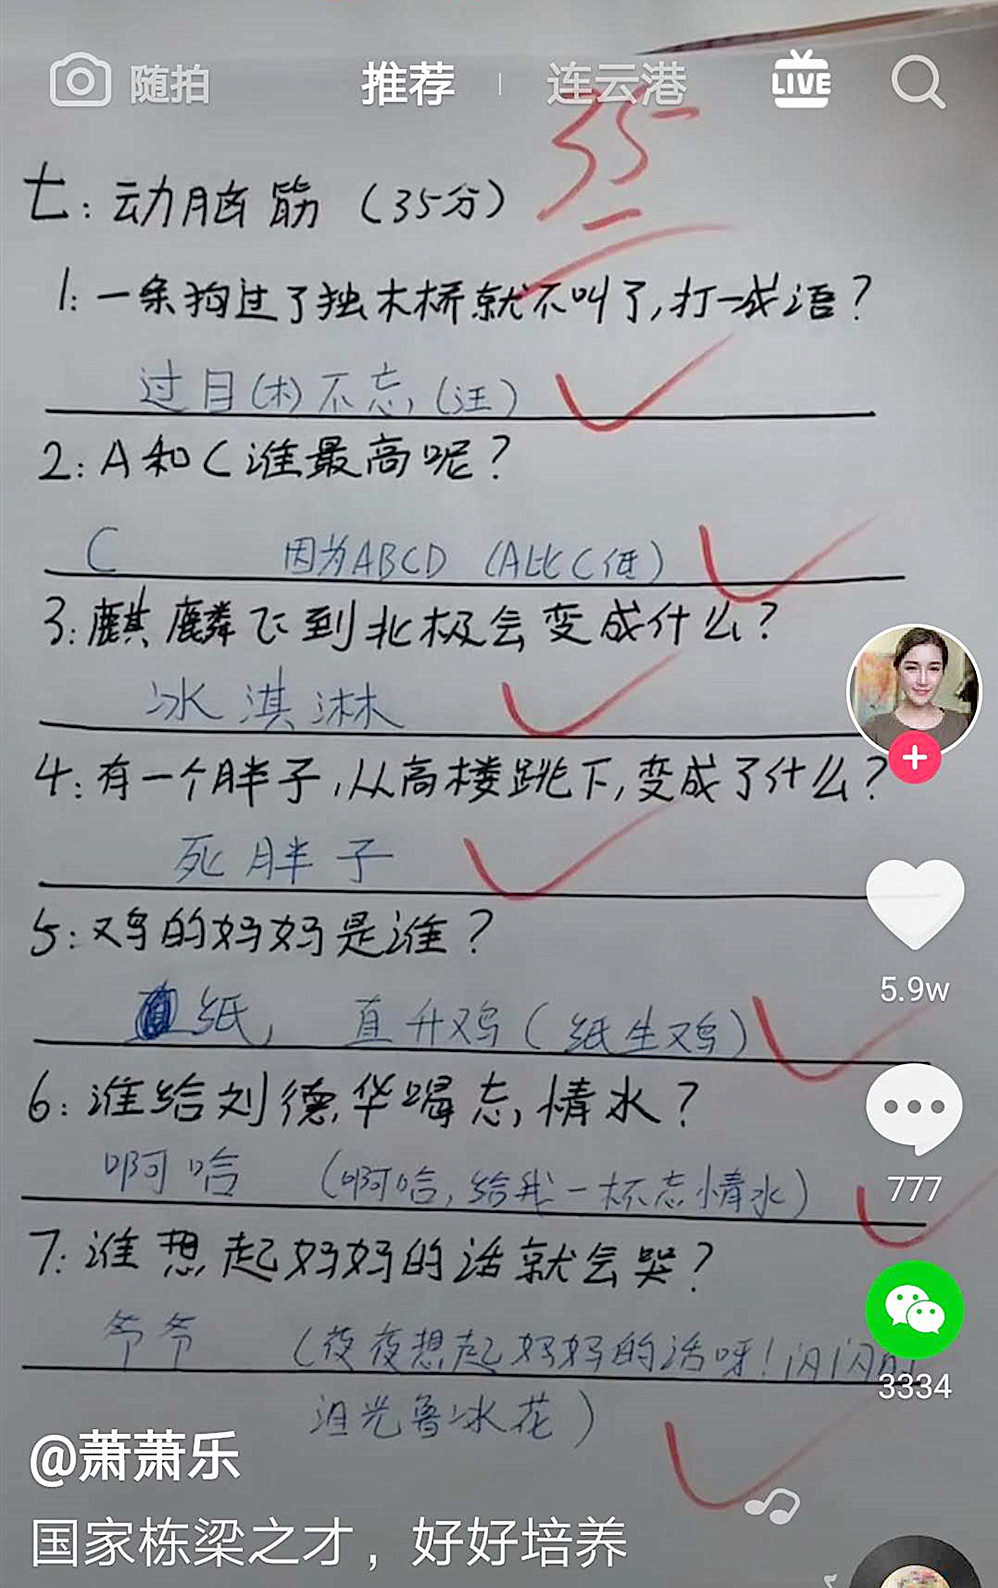 随拍 推荐 连云港 LIVE
35
七:动脑筋(35分)
1:一条狗过了独木桥就不叫了,打一成语?
过目(木)不忘,(汪)
2:A和C谁最高呢?
C 因为ABCD (A比C低)
3:麒麟飞到北极会变成什么?
冰淇淋
4:有一个胖子,从高楼跳下,变成了什么?
死胖子
5:鸡的妈妈是谁?
纸, 直升鸡(纸生鸡)
5.9w
6:谁给刘德华喝忘情水?
啊哈 (啊哈,给我一杯忘情水)
777
7:谁想起妈妈的话就会哭?
爷爷 (夜夜想起妈妈的话呀!闪闪的
3334
泪光鲁冰花)
@萧萧乐
国家栋梁之才,好好培养